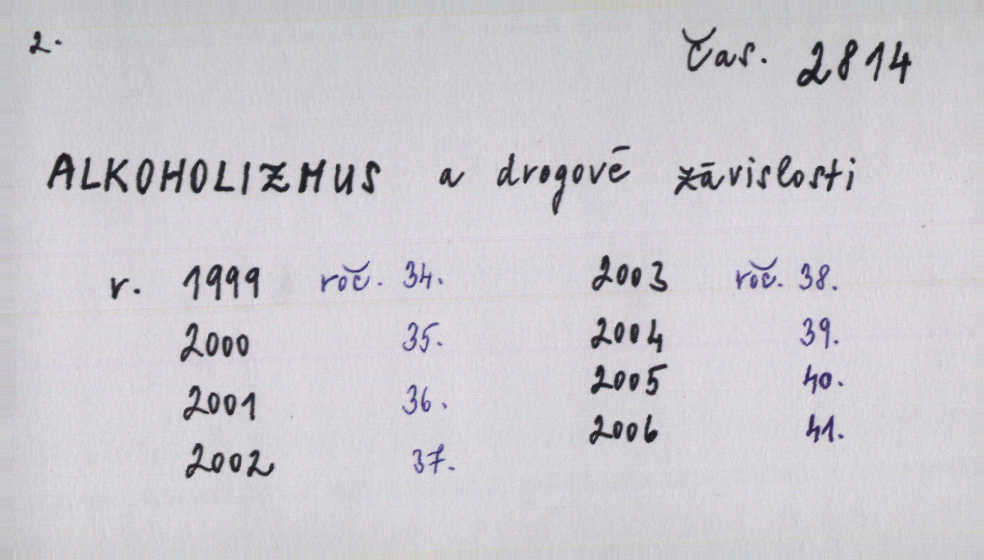 2.
Čas. 2814
ALKOHOLIZMUS a drogové závislosti
r. 1999 roč. 34. 2003 roč. 38.
2000 35. 2004 39.
2001 36. 2005 40.
2002 37. 2006 41.